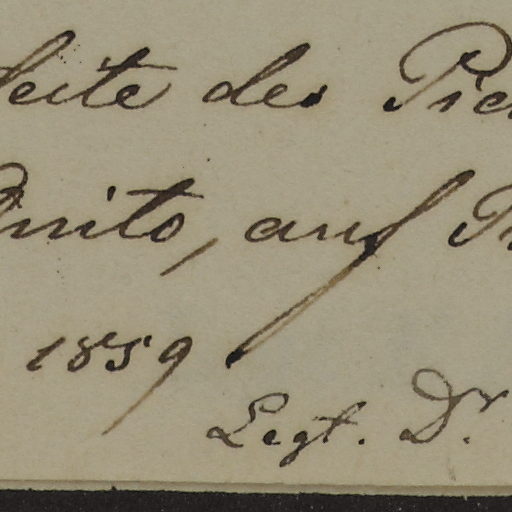 seite des Pic
Quito, auf
1859
Legt. Dr.